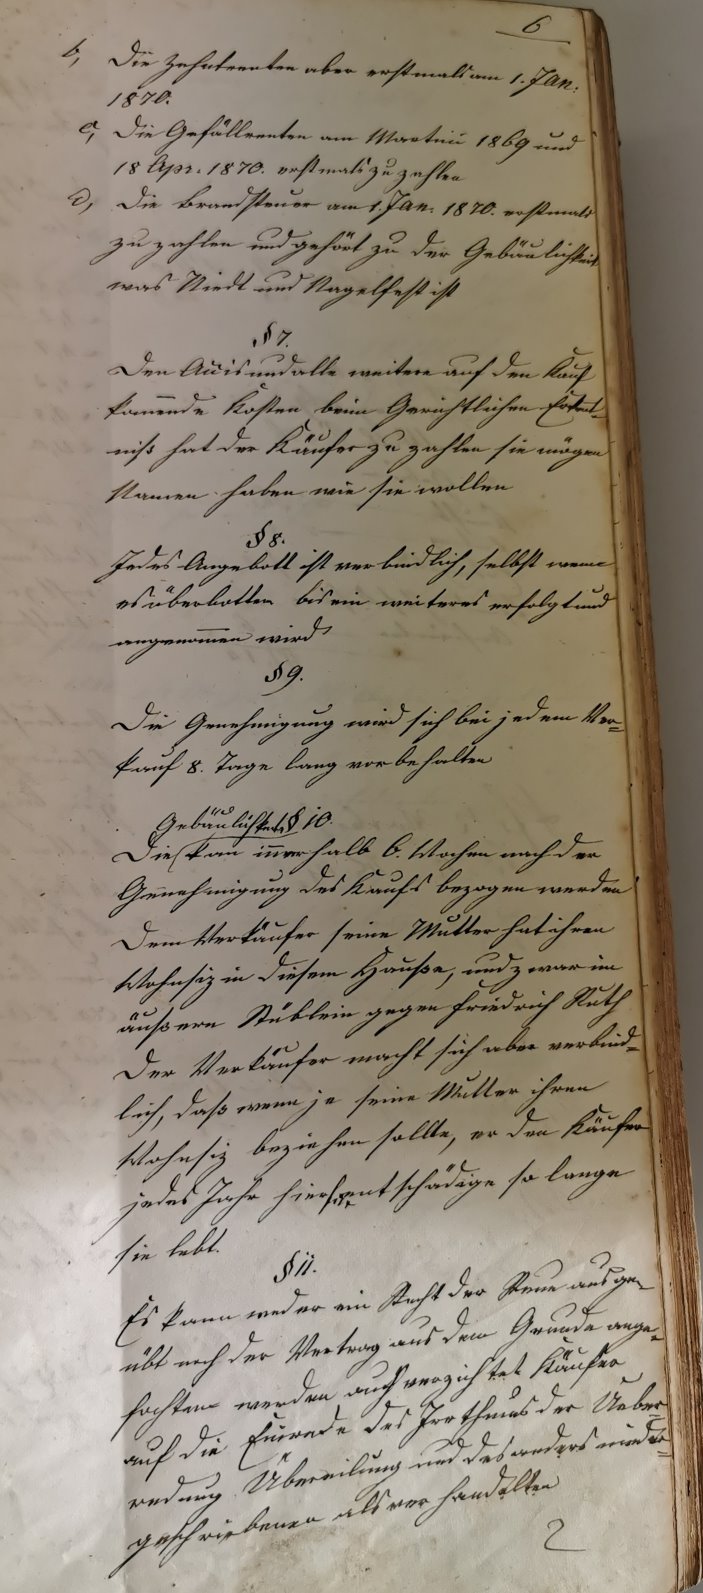 6
b, Die Zehntrenten aber erstmals am 1. Jan.
1870.
c, Die Gefällrenten am Martini 1869 und
18 Apr. 1870. erstmals zu zahlen
d, Die Brandsteuer am 1. Jan. 1870. erstmals
zu zahlen und gehört zu der Gebäulichkeit
was Niedt und Nagelfest ist
§ 7.
Den Accis und alle weitere auf den Kauf
kommende Kosten beim Gerichtlichen Erkent-
niß hat der Käufer zu zahlen sie mögen
Namen haben wie sie wollen
§ 8.
Jedes Angebott ist verbindlich, selbst wenn
es überbotten bis ein weiteres erfolgt und
angenommen wird
§ 9.
Die Genehmigung wird sich bei jedem Ver-
kauf 8. Tage lang vorbehalten
§ 10.
Gebäulichkeit
Die kan innerhalb 6. Wochen nach der
Genehmigung des Kaufs bezogen werden
Dem Verkäufer seine Mutter hat ihren
Wohnsiz in diesem Hauße, und zwar im
äußern Stüblein gegen Friedrich Ruth
Der Verkäufer macht sich aber verbind-
lich, daß wenn je seine Mutter ihren
Wohnsiz beziehen sollte, er den Käufer
jedes Jahr hierfür entschädige so lange
sie lebt.
§ 11.
Es kann weder ein Recht der Reue ausge-
übt noch der Vertrag aus dem Grunde ange-
fochten werden auch verzichtet Käufer
auf die Einrede des Irrthums der Ueber-
redung Übereilung und des anders nieder-
geschriebenen als verhandelten
2